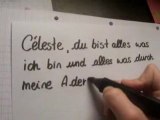 Céleste, du bist alles was
ich bin und alles was durch
meine Ader